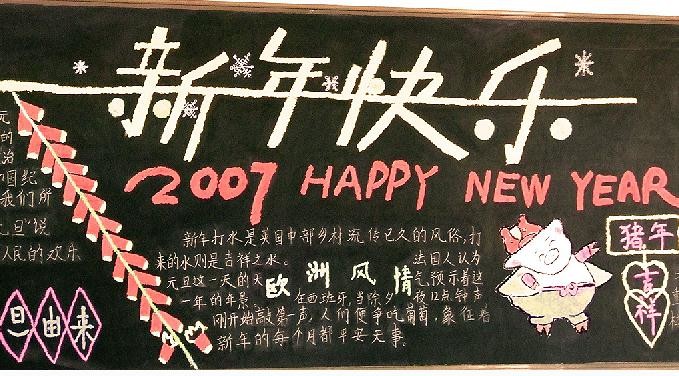 新年快乐
2007 HAPPY NEW YEAR
元
的
治
国纪
我们所
元旦"说
人民的欢乐
旦由来
新年打水是英国中部乡村流传已久的风俗,打
来的水则是吉祥之水。
法国人认为
元旦这一天的天
气预示着这
一年的年景
欧洲风情
在西班牙,当除夕
夜12点钟声
刚开始敲第一声,人们便争吃葡萄,象征着
新年的每个月都平安无事。
猪年
吉祥